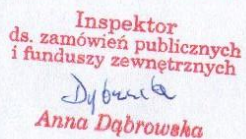 Inspektor
ds. zamówień publicznych
i funduszy zewnętrznych
Anna Dąbrowska